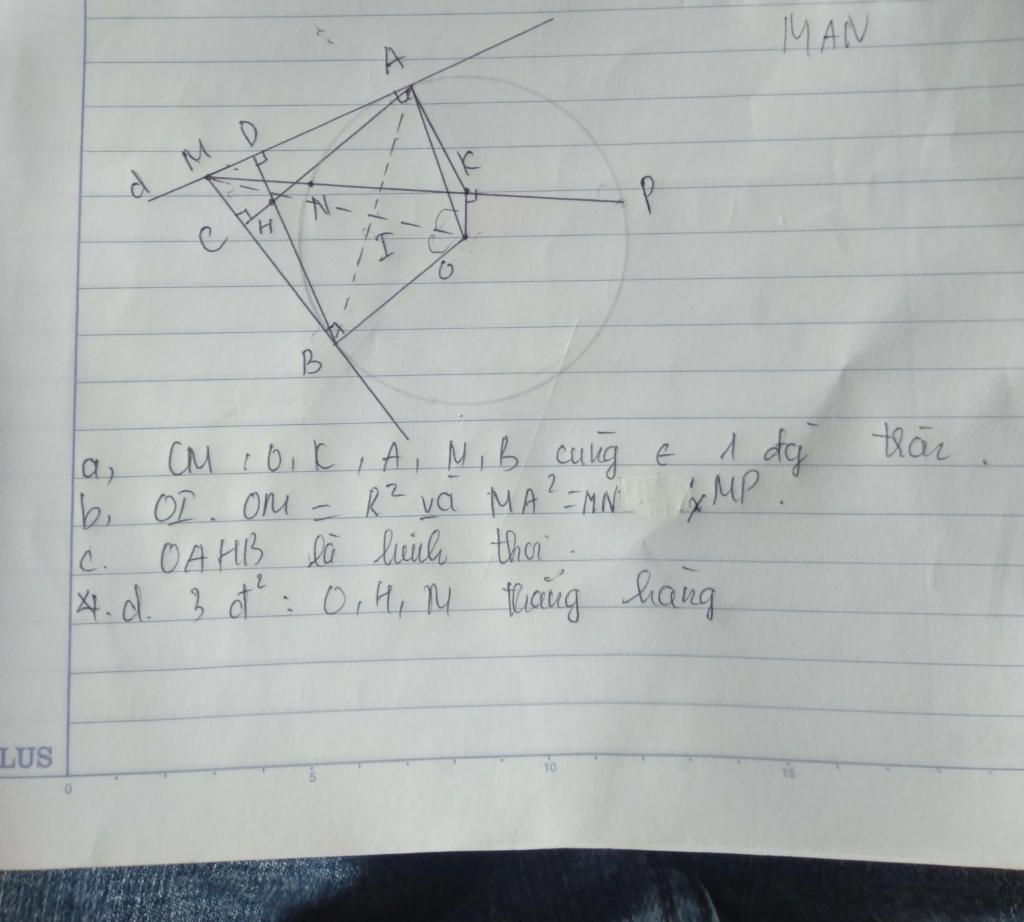 MAN
A
D
M
K
d
P
N
C
H
I
O
B
a, CM : O, K, A, M, B cùng ∈ 1 đg tròn.
b, OI. OM = R² và MA² = MN x MP.
c. OAHB là hình thoi.
4. d. 3 đ² : O, H, M thẳng hàng
LUS
0 5 10 15